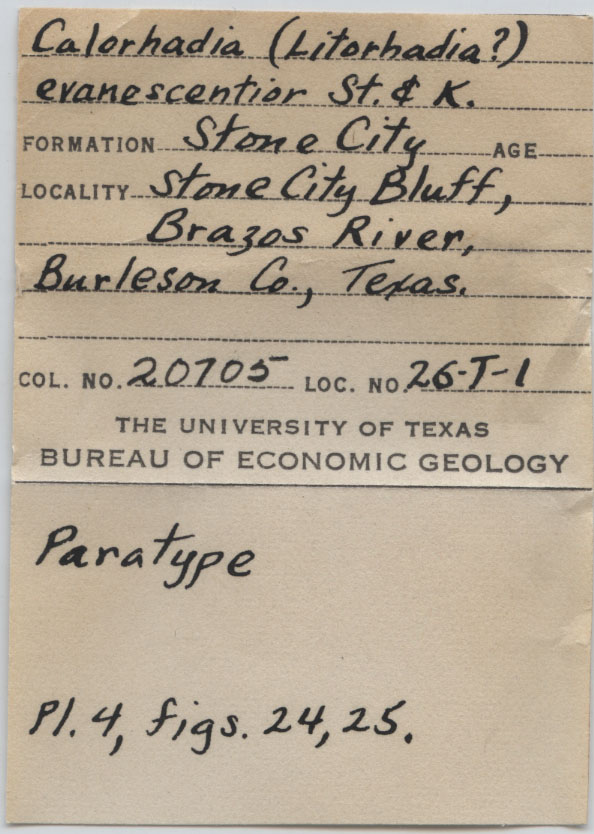 Calorhadia (Litorhadia?)
evanescentior St. & K.
FORMATION Stone City AGE
LOCALITY Stone City Bluff,
Brazos River,
Burleson Co., Texas.
COL. NO. 20705 LOC. NO. 26-T-1
THE UNIVERSITY OF TEXAS
BUREAU OF ECONOMIC GEOLOGY
Paratype
Pl. 4, figs. 24, 25.